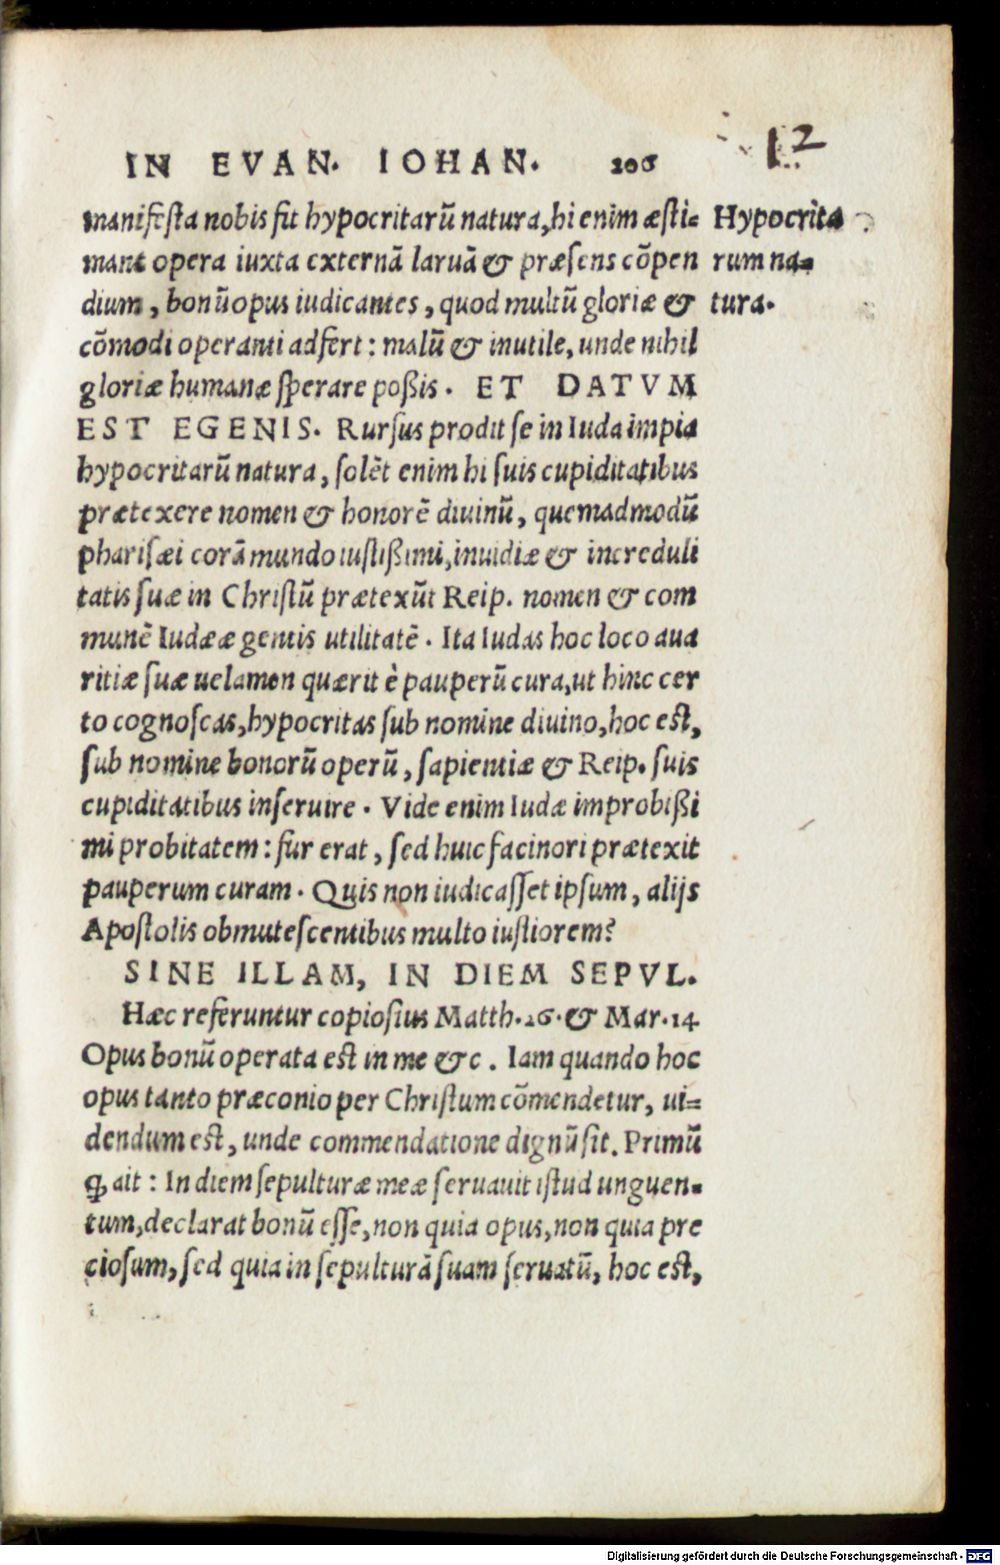 IN EVAN. IOHAN. 206
12
manifesta nobis fit hypocritarũ natura, hi enim æsti=
Hypocrita
mant opera iuxta externã laruã & præsens cõpen
rum na=
dium, bonũ opus iudicantes, quod multũ gloriæ &
tura.
cõmodi operanti adfert: malũ & inutile, unde nihil
gloriæ humanæ sperare poßis. ET DATVM
EST EGENIS. Rursus prodit se in Iuda impia
hypocritarũ natura, solẽt enim hi suis cupiditatibus
prætexere nomen & honorẽ diuinũ, quemadmodũ
pharisæi corã mundo iustißimi, inuidiæ & increduli
tatis suæ in Christũ prætexũt Reip. nomen & com
munẽ Iudææ gentis utilitatẽ. Ita Iudas hoc loco aua
ritiæ suæ uelamen quærit è pauperũ cura, ut hinc cer
to cognoscas, hypocritas sub nomine diuino, hoc est,
sub nomine bonorũ operũ, sapientiæ & Reip. suis
cupiditatibus inseruire. Vide enim Iudæ improbißi
mi probitatem: fur erat, sed huic facinori prætexit
pauperum curam. Quis non iudicasset ipsum, alijs
Apostolis obmutescentibus multo iustiorem?
SINE ILLAM, IN DIEM SEPVL.
Hæc referuntur copiosius Matth. 26. & Mar. 14
Opus bonũ operata est in me &c. Iam quando hoc
opus tanto præconio per Christum cõmendetur, ui=
dendum est, unde commendatione dignũ sit. Primũ
ꝙ ait: In diem sepulturæ meæ seruauit istud unguen=
tum, declarat bonũ esse, non quia opus, non quia pre
ciosum, sed quia in sepulturã suam seruatũ, hoc est,
Digitalisierung gefördert durch die Deutsche Forschungsgemeinschaft - DFG